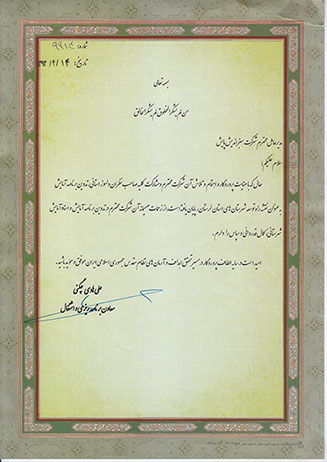 شماره: ۹۹۱۴
تاریخ: ۹۳/۹/۱۴
بسمه تعالی
من لم یشکر المخلوق لم یشکر الخالق
مدیرعامل محترم شرکت سبز اندیش پایش
سلام علیکم؛
حال که با عنایات پروردگار و اهتمام و تلاش آن شرکت محترم و مشارکت کلیه صاحب نظران و امور استانی، تدوین برنامه آمایش
به عنوان نقشه راه توسعه شهرستان های استان لرستان، پایان یافته است، از زحمات صمیمانه آن شرکت محترم در تدوین برنامه آمایش و اسناد آمایش
شهرستانی کمال قدردانی و سپاس را دارم.
امید است در سایه الطاف پروردگار در مسیر تحقق اهداف و آرمان های نظام مقدس جمهوری اسلامی ایران موفق و موید باشید.
علی هادی چگنی
معاون برنامه ریزی و اشتغال